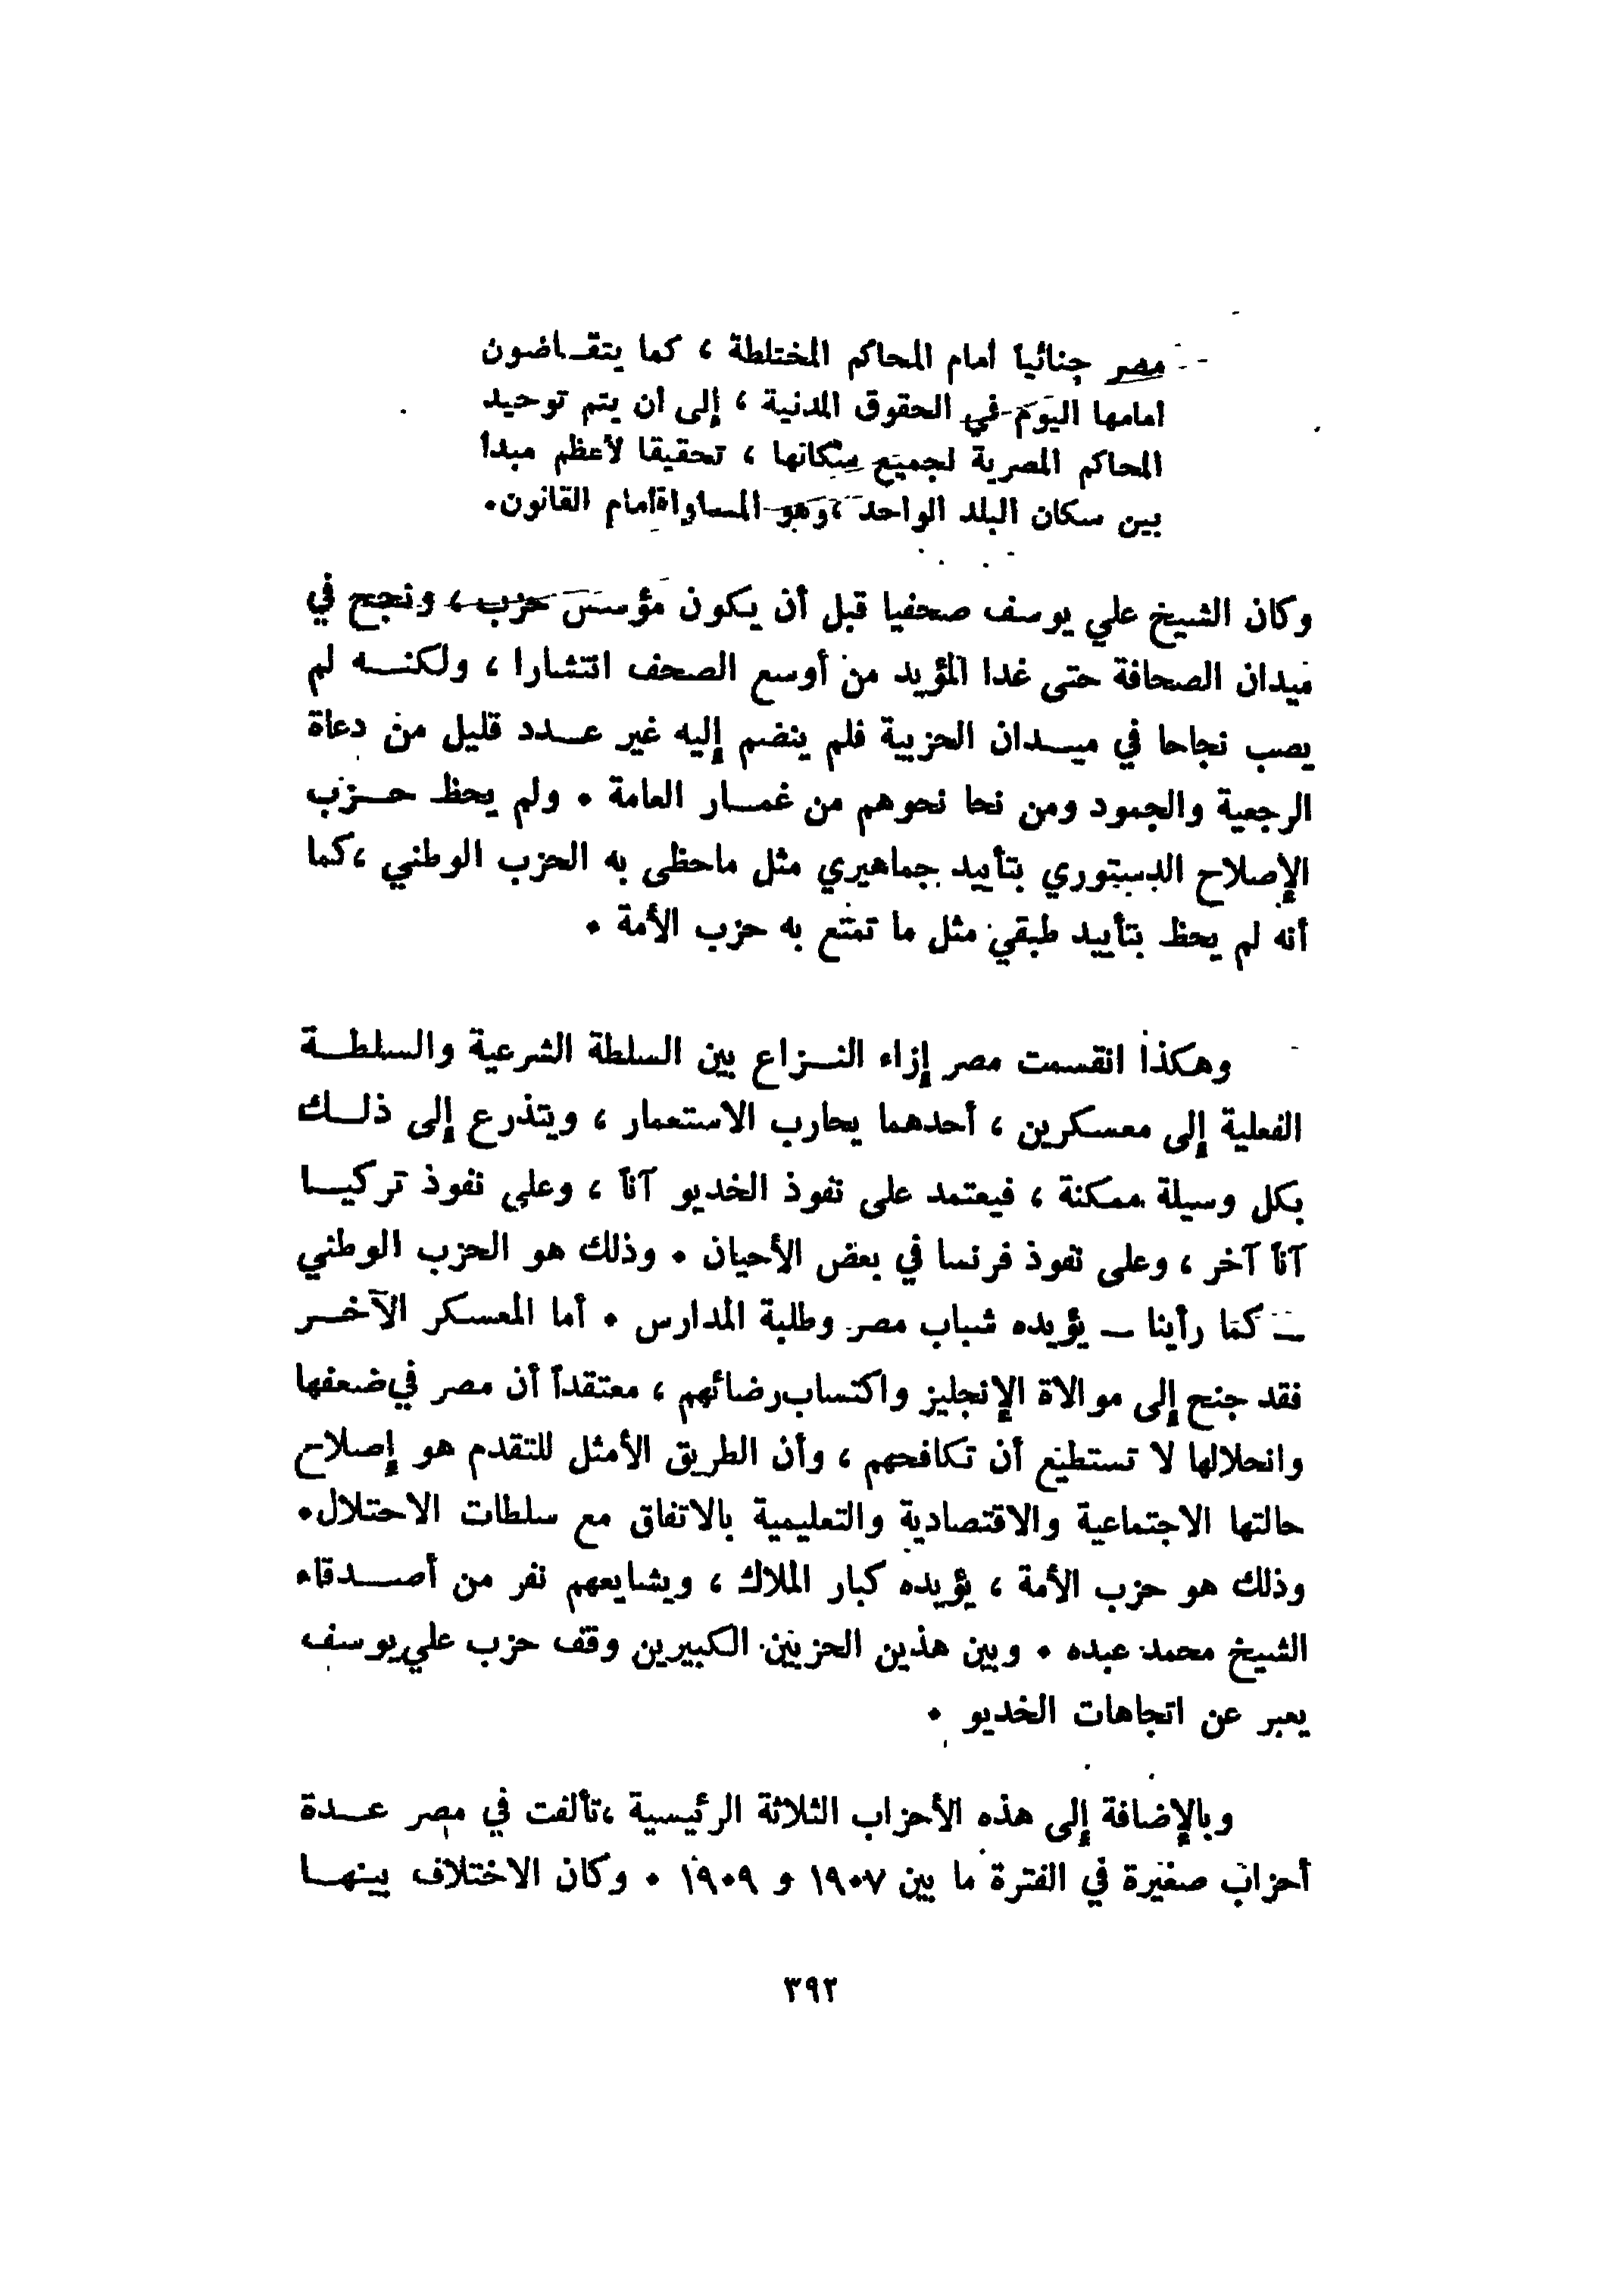 مصر جنائياً أمام المحاكم المختلطة ، كما يتقاضون
أمامها اليوم في الحقوق المدنية ، إلى أن يتم توحيد
المحاكم المصرية لجميع سكانها ، تحقيقا لأعظم مبدأ
بين سكان البلد الواحد ، وهو المساواة أمام القانون.
وكان الشيخ علي يوسف صحفيا قبل أن يكون مؤسس حزب ، ونجح في
ميدان الصحافة حتى غدا المؤيد من أوسع الصحف انتشارا ، ولكنه لم
يصب نجاحا في ميدان الحزبية فلم ينضم إليه غير عدد قليل من دعاة
الرجعية والجمود ومن نحا نحوهم من غمار العامة . ولم يحظ حزب
الإصلاح الدستوري بتأييد جماهيري مثل ماحظى به الحزب الوطني ،كما
أنه لم يحظ بتأييد طبقي مثل ما تمتع به حزب الأمة .
وهكذا انقسمت مصر إزاء النزاع بين السلطة الشرعية والسلطة
الفعلية إلى معسكرين ، أحدهما يحارب الاستعمار ، ويتذرع إلى ذلك
بكل وسيلة ممكنة ، فيعتمد على نفوذ الخديو آناً ، وعلى نفوذ تركيا
آناً آخر ، وعلى نفوذ فرنسا في بعض الأحيان . وذلك هو الحزب الوطني
ــ كما رأينا ــ يؤيده شباب مصر وطلبة المدارس . أما المعسكر الآخر
فقد جنح إلى موالاة الإنجليز واكتساب رضائهم ، معتقداً أن مصر في ضعفها
وانحلالها لا تستطيع أن تكافحهم ، وأن الطريق الأمثل للتقدم هو إصلاح
حالتها الاجتماعية والاقتصادية والتعليمية بالاتفاق مع سلطات الاحتلال.
وذلك هو حزب الأمة ، يؤيده كبار الملاك ، ويشايعهم نفر من أصدقاء
الشيخ محمد عبده . وبين هذين الحزبين الكبيرين وقف حزب علي يوسف
يعبر عن اتجاهات الخديو .
وبالإضافة إلى هذه الأحزاب الثلاثة الرئيسية ،تألفت في مصر عدة
أحزاب صغيرة في الفترة ما بين ١٩٠٧ و ١٩٠٩ . وكان الاختلاف بينها
٣٩٢